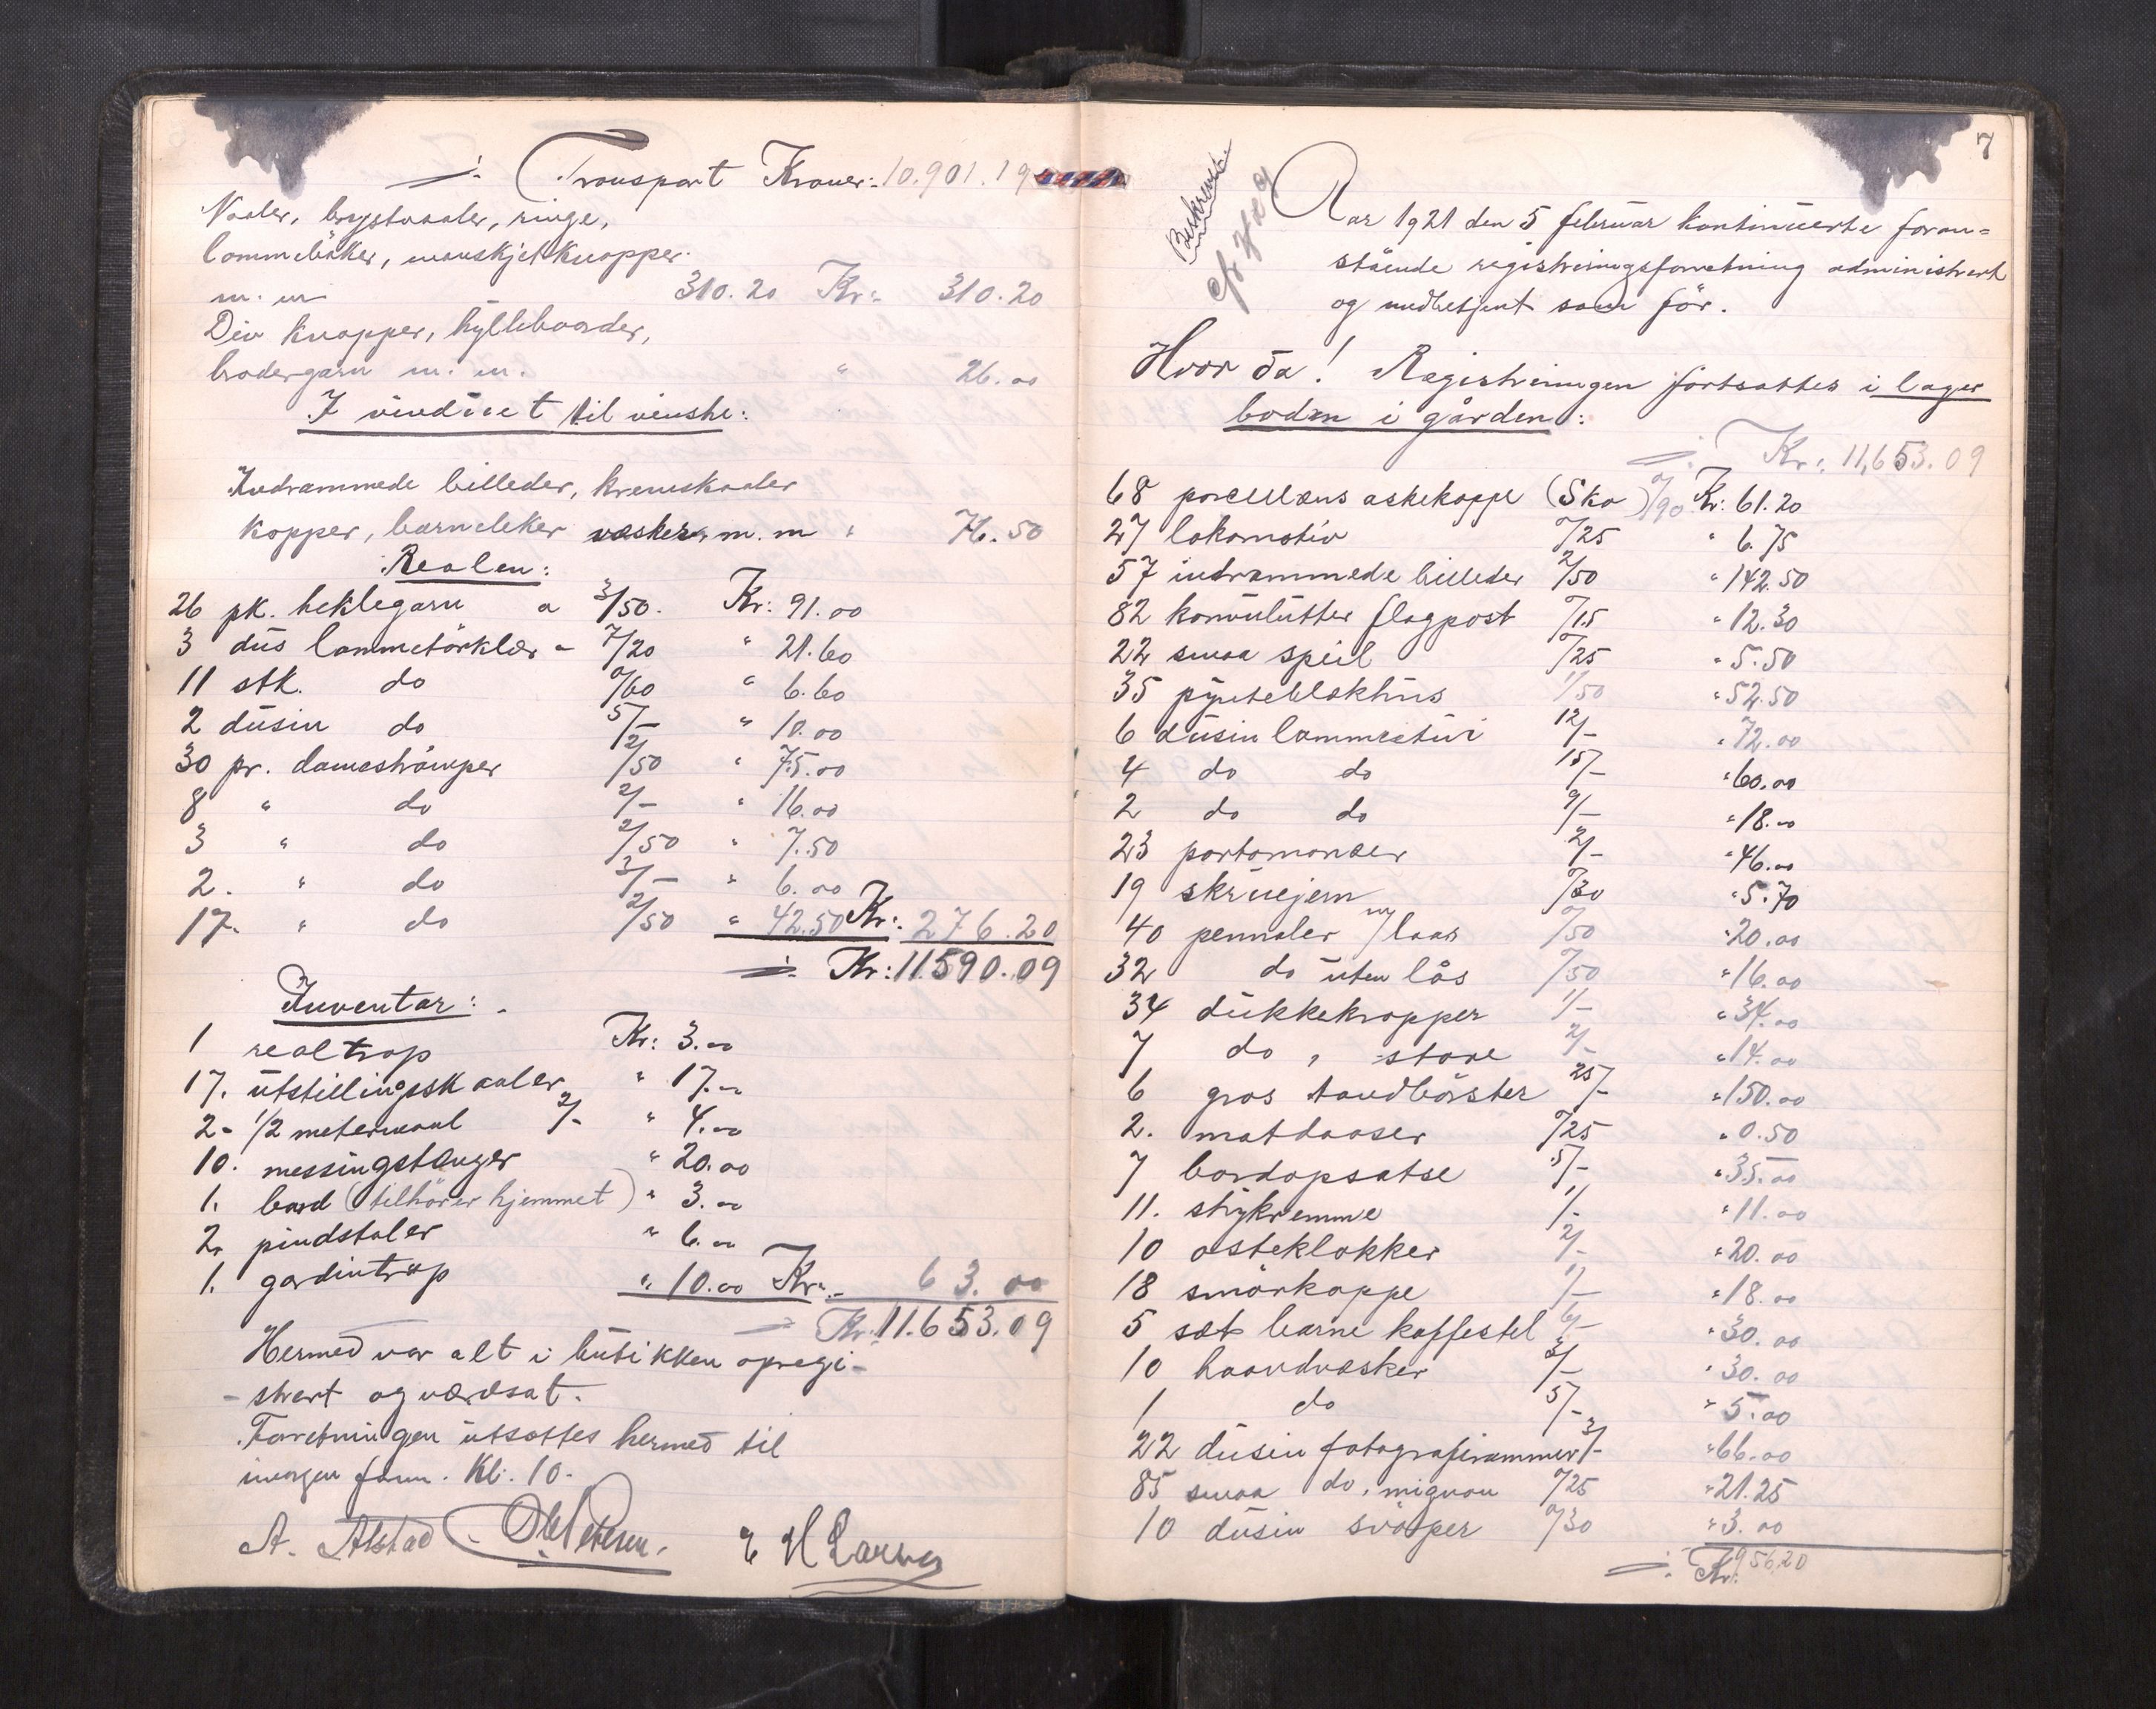 Transport Kroner: 10.901.19
Naaler, brystnaaler, ringe,
lommebøker, manskjetknapper
m. m 310.20 Kr: 310.20
Div knapper, hylleborder,
brodergarn m. m. " 26.00
I vinduet til venstre:
Indrammede billeder, kremskaaler
kopper, barneleker vasker m. m " 76.50
Reolen:
26 pk. heklegarn a 3/50. Kr: 91.00
3 dus lommetörklær - 7/20 " 21.60
11 stk. do 0/60 " 6.60
2 dusin do 5/- " 10.00
30 pr. dameströmper 2/50 " 75.00
8 " do 2/- " 16.00
3 " do 2/50 " 7.50
2. " do 3/- " 6.00
17. " do 2/50 " 42.50 Kr: 276.20
Kr: 11.590.09
Inventar:
1 realtrap Kr: 3.00
17. utstillingsskaaler " 17.00
2- 1/2 metermaal 2/- " 4.00
10. messingstænger " 20.00
1. bord (tilhörer hjemmet) " 3.00
2. pindstoler " 6.00
1. gardintrap " 10.00 Kr: 63.00
Kr: 11.653.09
Hermed var alt i butikken opregi-
-strert og værdsat.
Forretningen utsattes hermed til
imorgen form. Kl. 10-
A. Alstad Ole Petersen. E H Larsen
7
Beskrevet
Aar 1921 den 5 februar kontinuerte foran=
stående registreringsforretning administrert
og medbetjent som för.
Hvor da! Registreringen fortsattes i lager
boden i gården:
Kr: 11,653.09
68 porcellæns askekoppe (Sko) 0/90 Kr: 61.20
27 lokomotiv 0/25 " 6.75
57 indrammede billeder 2/50 " 142.50
82 konvulutter flagpost 0/15 " 12.30
22 smaa speil 0/25 " 5.50
35 pynteblokhus 1/50 " 52.50
6 dusin lommeetui 12/- " 72.00
4 do do 15/- " 60.00
2 do do 9/- " 18.00
23 portomonæer 2/- " 46.00
19 skruejern 0/30 " 5.70
40 pennaler m/laas 0/50 " 20.00
32 do uten lås 0/50 " 16.00
34 dukkekropper 1/- " 34.00
7 do, store 2/- " 14.00
6 gros tandbörster 25/- " 150.00
2. matdaaser 0/25 " 0.50
7 bordopsatse 5/- " 35.00
11. strykremme 1/- " 11.00
10 osteklokker 2/- " 20.00
18 smörkoppe 1/- " 18.00
5 sæt barne kaffestel 6/- " 30.00
10 haandvasker 3/- " 30.00
1 do 5/- " 5.00
22 dusin fotografirammer 3/- " 66.00
85 smaa do, mignon 0/25 " 21.25
10 dusin svöper 0/30 " 3.00
Kr: 956,20